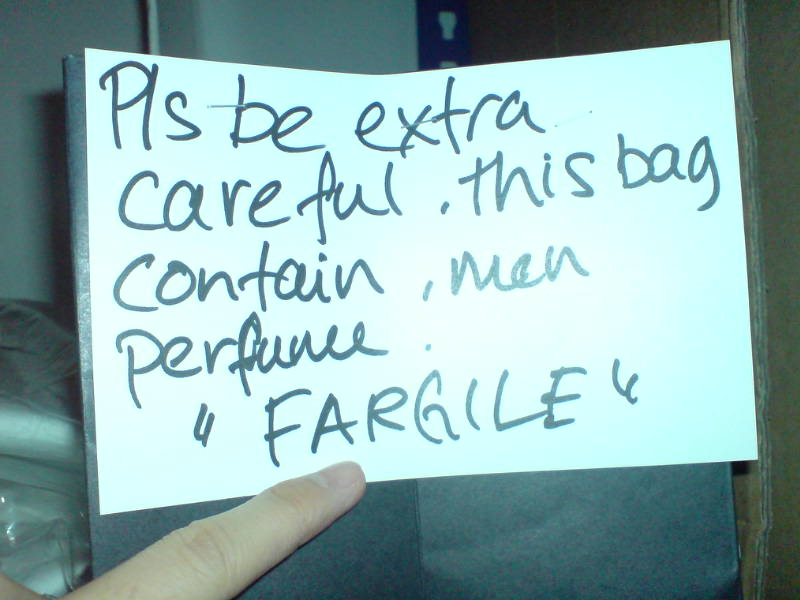 Pls be extra
careful. this bag
contain, men
perfume.
"FARGILE"